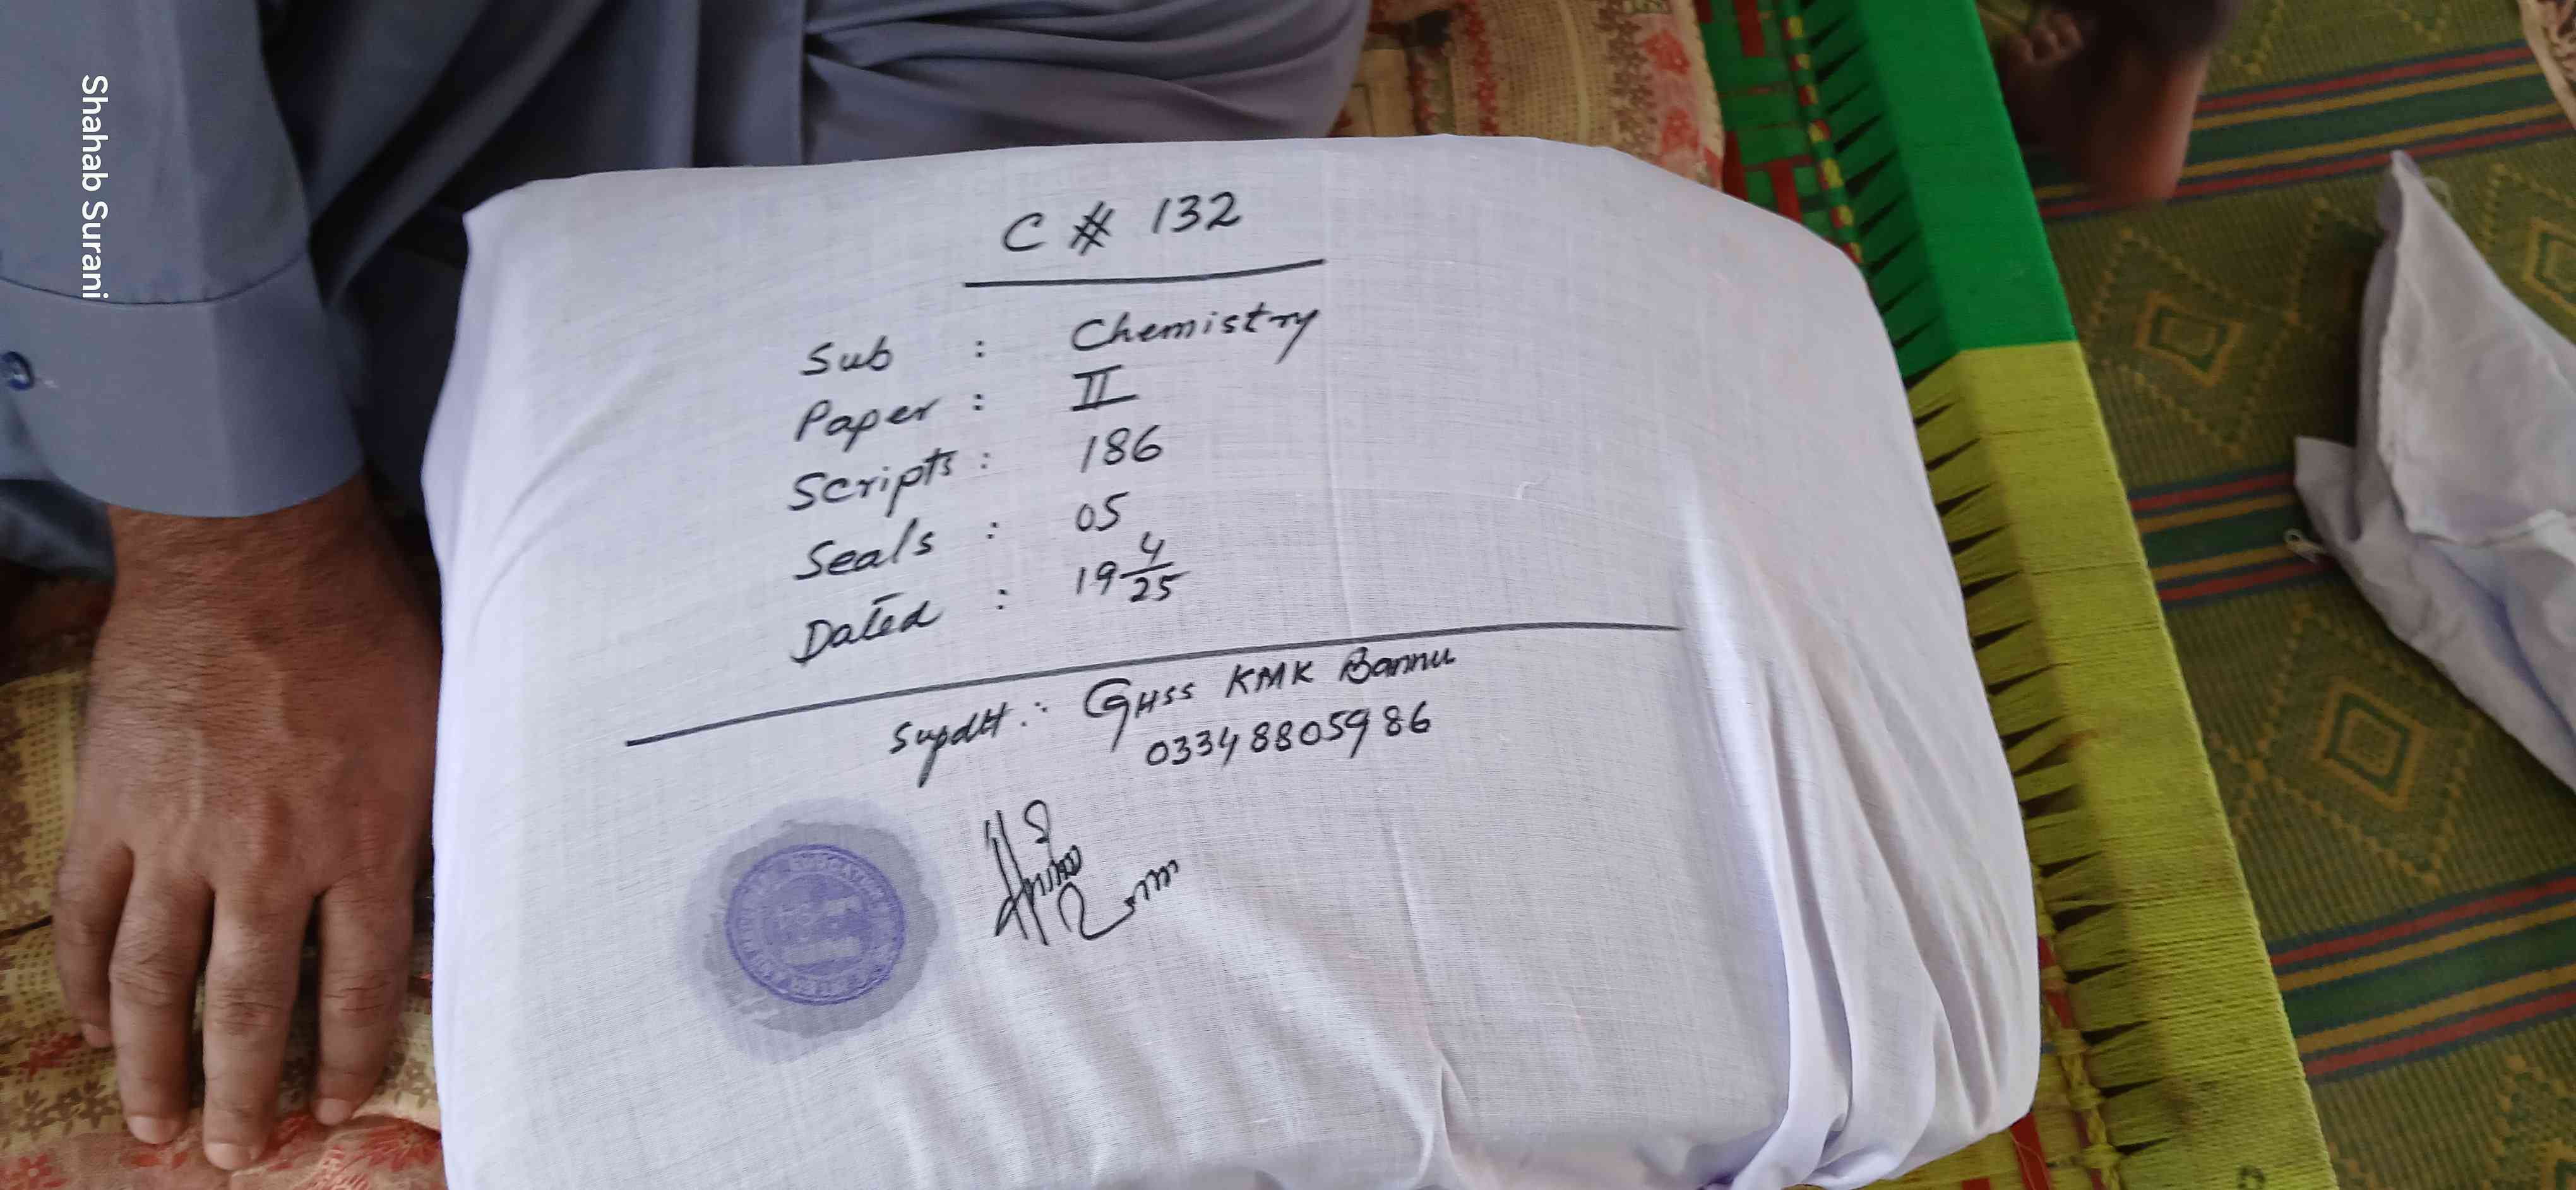 Shahab Surani
C # 132
Sub : Chemistry
Paper : II
Scripts : 186
Seals : 05
Dated : 19 4/25
Supdtt :- GHSS KMK Bannu
03348805986